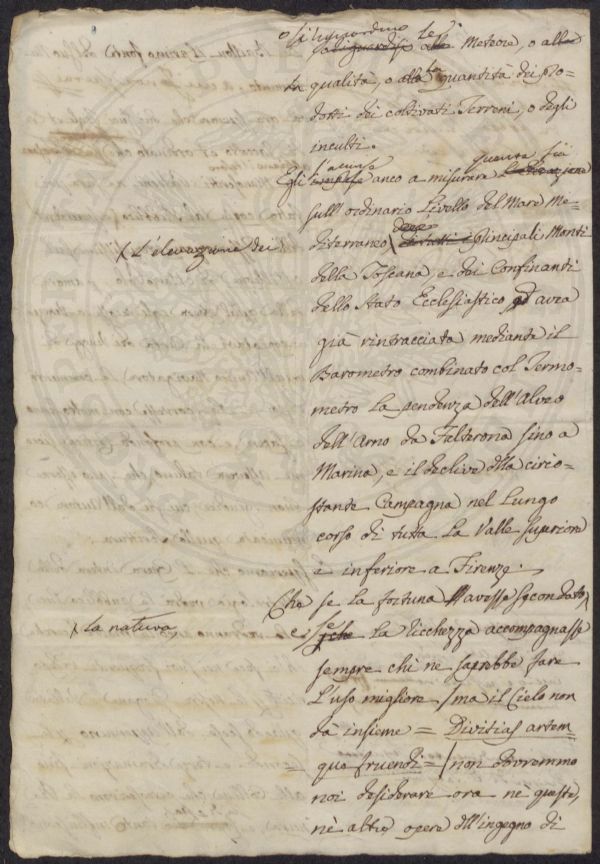 o si risguardino le
Meteore, o
la qualità, o la quantità dei pro-
dotti dei coltivati Terreni, o degli
inculti.
Egli anco a misurare quanto sia
sull'ordinario Livello del Mare Me-
diterraneo principali Monti
(L'elevazione dei
della Toscana e dei Confinanti
dello Stato Ecclesiastico avea
già rintracciata mediante il
Barometro combinato col Termo-
metro la pendenza dell'Alveo
dell'Arno da Falterona sino a
Marina, e il declive della circo-
stante Campagna nel Lungo
corso di tutta la Valle superiore
è inferiore a Firenze.
Che se la fortuna avesse secondato
(La natura,
e se la ricchezza accompagnasse
sempre chi ne saprebbe fare
l'uso migliore (ma il Cielo non
dà insieme = Divitias artem-
que fruendi =) non dovremmo
noi desiderare ora nè queste,
nè altre opere dell'ingegno di